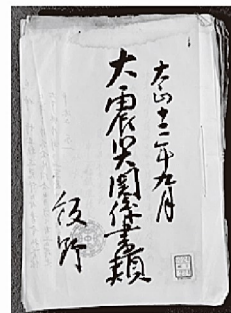 大正十二年九月
大震災関係書類
飯野